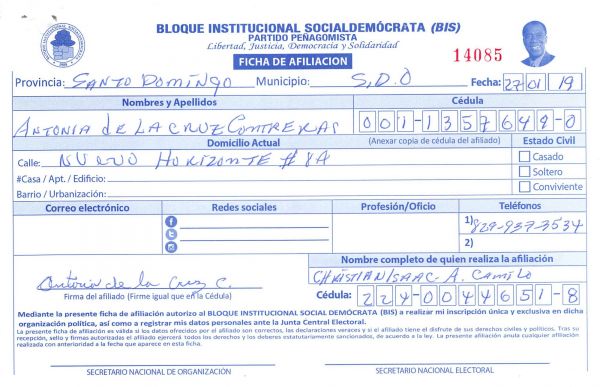 BLOQUE INSTITUCIONAL SOCIALDEMÓCRATA (BIS)
PARTIDO PEÑAGOMISTA
Libertad, Justicia, Democracia y Solidaridad
FICHA DE AFILIACION
14085
Provincia: SANTO DOMINGO Municipio: S.D.O Fecha: 27 01 19
Nombres y Apellidos Cédula
ANTONIA de LA CRUZ CONTRERAS 001-1357648-0
Domicilio Actual (Anexar copia de cédula del afiliado) Estado Civil
Calle: NUEVO HORIZONTE # 8A Casado
#Casa / Apt. / Edificio: Soltero
Barrio / Urbanización: Conviviente
Correo electrónico Redes sociales Profesión/Oficio Teléfonos
1) 829-937-3534
2)
Nombre completo de quien realiza la afiliación
Antonia de la Cruz C. CHRISTIAN ISAAC A. CAMILO
Firma del afiliado (Firme igual que en la Cédula) Cédula: 224-0044651-8
Mediante la presente ficha de afiliación autorizo al BLOQUE INSTITUCIONAL SOCIAL DEMÓCRATA (BIS) a realizar mi inscripción única y exclusiva en dicha
organización política, así como a registrar mis datos personales ante la Junta Central Electoral.
La presente ficha de afiliación es válida si los datos ofrecidos por el afiliado son correctos, las declaraciones versos y si el afiliado tiene el disfrute de sus derechos civiles y políticos. Tras su
recepción, sello y firmas autorizadas el afiliado ejercerá todos los derechos y los deberes estatutariamente sancionados, de acuerdo a la ley. La presente afiliación anula cualquier afiliación
realizada con anterioridad a la fecha que aparece en esta ficha.
SECRETARIO NACIONAL DE ORGANIZACIÓN SECRETARIO NACIONAL ELECTORAL